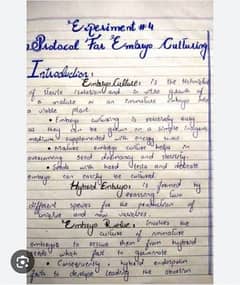 Experiment #4
Protocol For Embryo Culturing
Introduction:
Embryo Culture: is the
of sterile isolation and in vitro growth of
a mature or an immature embryo
a viable plant.
Embryo culturing is relatively easy
as they can be grown on a simple
medium supplemented with energy
Mature embryo culture helps in
overcoming seed dormancy and sterility.
Seeds with hard testa and delicate
embryo can easily be cultured
Hybrid Embryo: is formed by
crossing two
different species for the production of
unique and new varieties.
Embryo Rescue: involves the
culture of immature
embryos to rescue them from hybrid
seeds which fail to germinate
Consequently, hybrid endosperm
fails to develop leading to